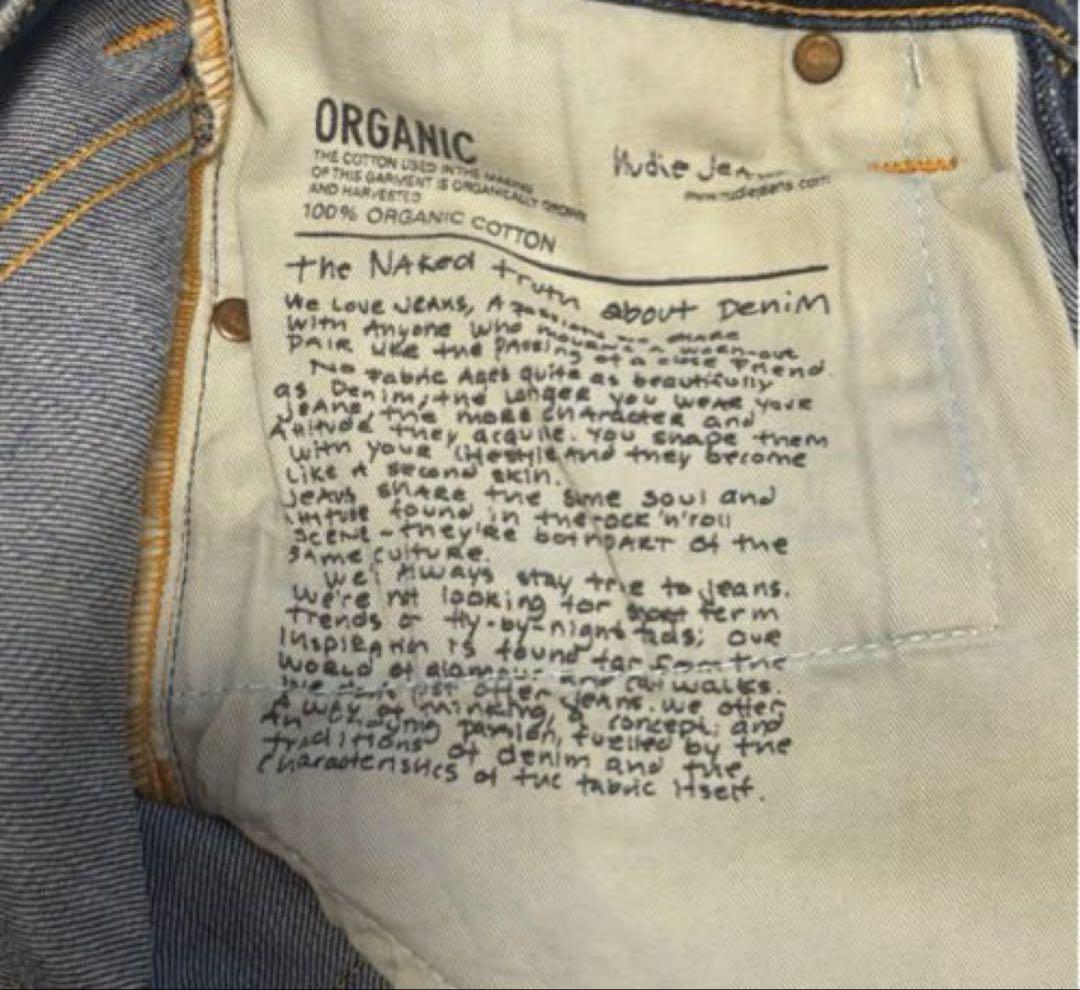 ORGANIC
THE COTTON USED IN THE MAKING
OF THIS GARMENT IS ORGANICALLY GROWN
AND HARVESTED
100% ORGANIC COTTON
Nudie Jeans
www.nudiejeans.com
the NAKed truth about DeniM
We Love JEANS, A passion we share
with Anyone who mourns a worn-out
PAIR like the PASSing of a close friend.
No fabric Ages quite as beautifully
as Denim, the longer you weAR youR
JeAns, the more chARActeR and
Attitude they acquire. You shape them
with your lifestyle And they become
Like A second skin.
JeAns shARe the same soul and
attitude found in the rock 'n' roll
scene - they're both pART of the
sAme culture.
We'll AlwAys stay true to jeans.
We're not looking for short term
trends or fly-by-night fads; our
inspiRAtion is found far from the
WORLD of glamour and catwalks.
We don't just offer jeans. We offer
A way of minding, A concept; and
An unending passion, fuelled by the
traditions of denim and the
characteristics of the fabric itself.